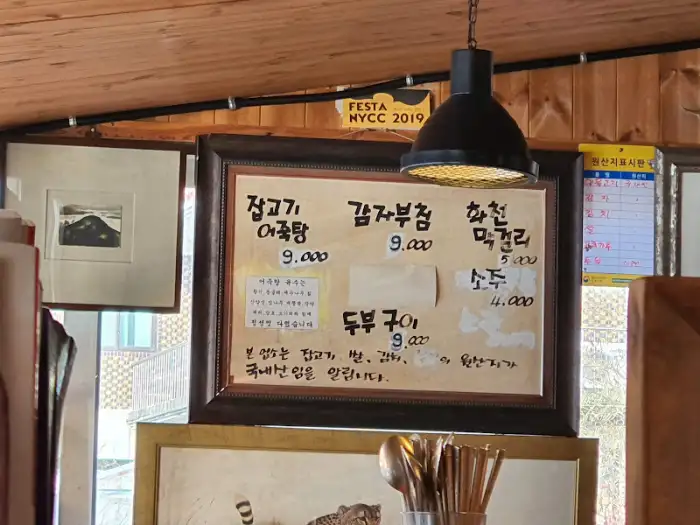 FESTA
NYCC 2019
원산지표시판
품목 원산지
잡고기
어죽탕
9.000
감자부침
9.000
화천
막걸리
5.000
소주
4.000
어죽탕 육수는
정성껏 다렸습니다
두부구이
9.000
본 업소는 잡고기, 쌀, 김치, 의 원산지가
국내산임을 알립니다.